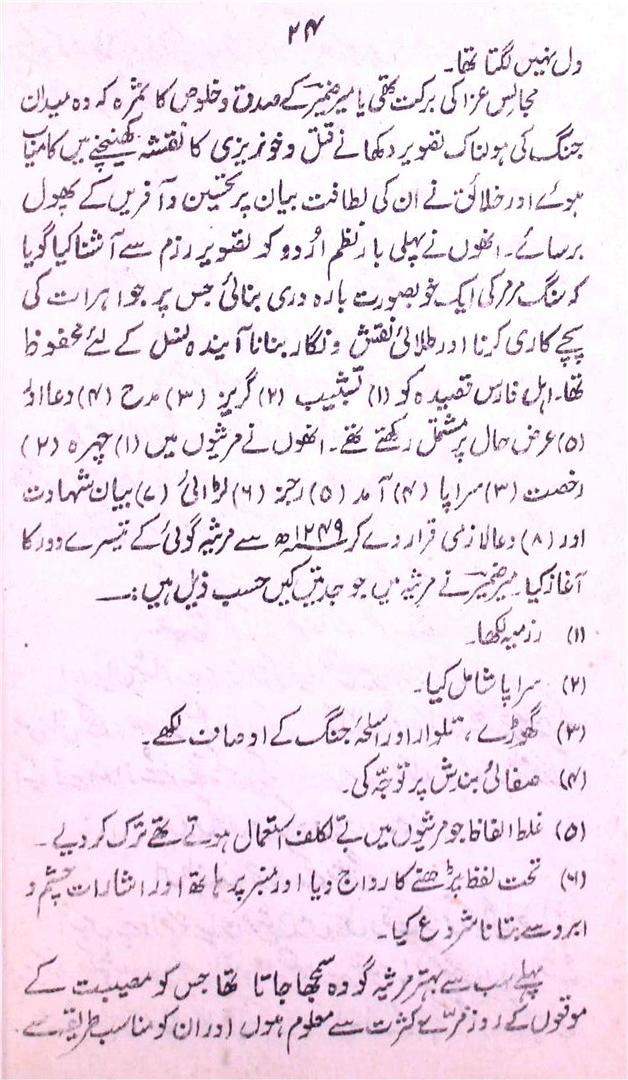 ۲۴
دل نہیں لگتا تھا۔
مجالسِ عزا کی برکت تھی یا میر ضمیرؔ کے صدق و خلوص کا ثمرہ کہ وہ میدان
جنگ کی ہولناک تصویر دکھانے قتل و خونریزی کا نقشہ کھینچنے میں کامیاب
ہوئے اور خلائق نے ان کی لطافت بیان پر تحسین و آفریں کے پھول
برسائے۔ انھوں نے پہلی بار نظم اُردو کو تصویر رزم سے آشنا کیا گویا
کہ سنگ مرمر کی ایک خوبصورت بارہ دری بنائی جس پر جواہرات کی
پچے کاری کرنا اور طلائی نقش و نگار بنانا آیندہ نسل کے لئے محفوظ
تھا۔ اہل فارس قصیدہ کو (۱) تشبیب (۲) گریز (۳) مدح (۴) دعا اور
(۵) عرض حال پر مشتمل رکھتے تھے۔ انھوں نے مرثیوں میں (۱) چہرہ (۲)
رخصت (۳) سراپا (۴) آمد (۵) رجز (۶) لڑائی (۷) بیان شہادت
اور (۸) دعا لازمی قرار دے کر ۱۲۴۹ھ سے مرثیہ گوئی کے تیسرے دور کا
آغاز کیا۔ میر ضمیرؔ نے مرثیہ میں جو جدتیں کیں حسب ذیل ہیں:—
(۱) رزمیہ لکھا۔
(۲) سراپا شامل کیا۔
(۳) گھوڑے، تلوار اور اسلحۂ جنگ کے اوصاف لکھے۔
(۴) صفائی بندش پر توجّہ کی۔
(۵) غلط الفاظ جو مرثیوں میں بے تکلف استعمال ہوتے تھے ترک کر دیے۔
(۶) تحت لفظ پڑھنے کا رواج دیا اور منبر پر ہاتھ اور اشارات چشم و
ابرو سے بتانا شروع کیا۔
پہلے سب سے بہتر مرثیہ گو وہ سمجھا جاتا تھا جس کو مصیبت کے
موقعوں کے روز مرّے کثرت سے معلوم ہوں اور ان کو مناسب طریقے سے